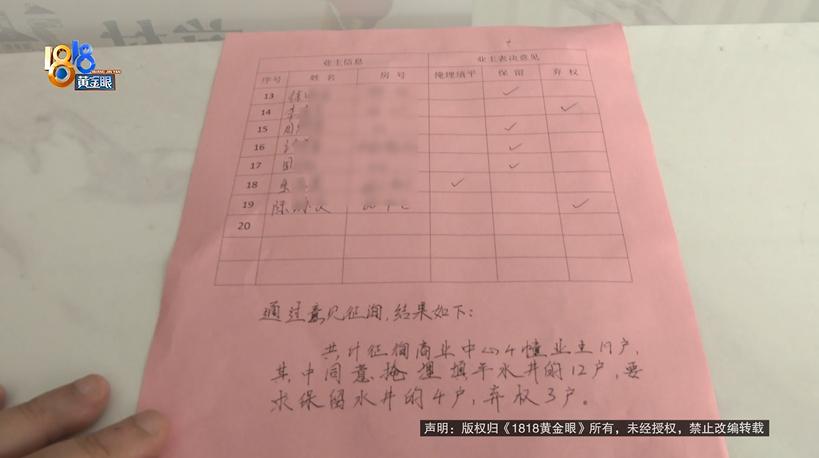 1818
黄金眼
业主信息 业主表决意见
序号 姓名 房号 掩埋填平 保留 弃权
13 ✓
14 ✓
15 ✓
16 ✓
17 ✓
18 ✓
19 陈 ✓
20
通过意见征询,结果如下:
共计征询商业中心4幢业主19户,
其中同意掩埋填平水井的12户,要
求保留水井的4户,弃权3户。
声明:版权归《1818黄金眼》所有,未经授权,禁止改编转载